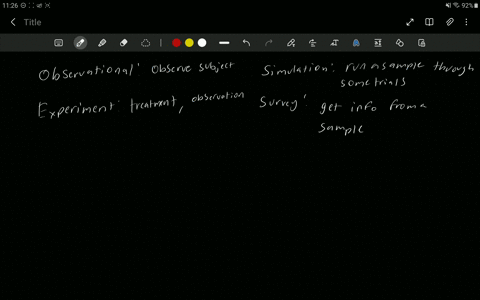 11:26
92%
Title
Observational: observe subject
Simulation: run a sample through
some trials
Experiment: treatment, observation
Survey: get info from a
sample